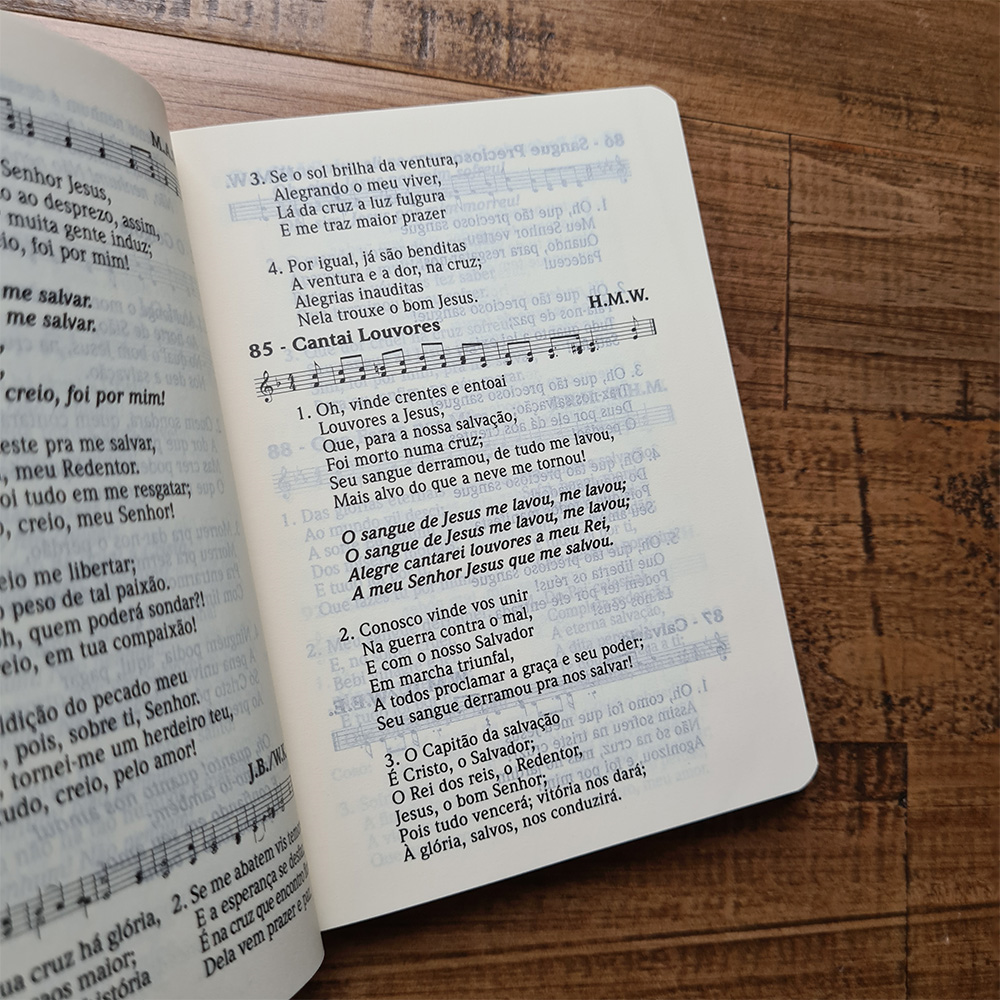 M.A.
Senhor Jesus,
o ao desprezo, assim,
muita gente induz;
io, foi por mim!
me salvar.
me salvar.
creio, foi por mim!
este pra me salvar,
, meu Redentor.
oi tudo em me resgatar;
, creio, meu Senhor!
eio me libertar;
o peso de tal paixão.
oh, quem poderá sondar?!
reio, em tua compaixão!
ldição do pecado meu
, pois, sobre ti, Senhor.
tornei-me um herdeiro teu,
tudo, creio, pelo amor!
J.B./W.K.
ua cruz há glória,
maior;
história
2. Se me abatem vis
E a esperança se
É na cruz que encontro
Dela vem prazer e
3. Se o sol brilha da ventura,
Alegrando o meu viver,
Lá da cruz a luz fulgura
E me traz maior prazer
4. Por igual, já são benditas
A ventura e a dor, na cruz;
Alegrias inauditas
Nela trouxe o bom Jesus.
85 - Cantai Louvores H.M.W.
1. Oh, vinde crentes e entoai
Louvores a Jesus,
Que, para a nossa salvação,
Foi morto numa cruz;
Seu sangue derramou, de tudo me lavou,
Mais alvo do que a neve me tornou!
O sangue de Jesus me lavou, me lavou;
O sangue de Jesus me lavou, me lavou;
Alegre cantarei louvores a meu Rei,
A meu Senhor Jesus que me salvou.
2. Conosco vinde vos unir
Na guerra contra o mal,
E com o nosso Salvador
Em marcha triunfal,
A todos proclamar a graça e seu poder;
Seu sangue derramou pra nos salvar!
3. O Capitão da salvação
É Cristo, o Salvador;
O Rei dos reis, o Redentor,
Jesus, o bom Senhor;
Pois tudo vencerá; vitória nos dará;
À glória, salvos, nos conduzirá.